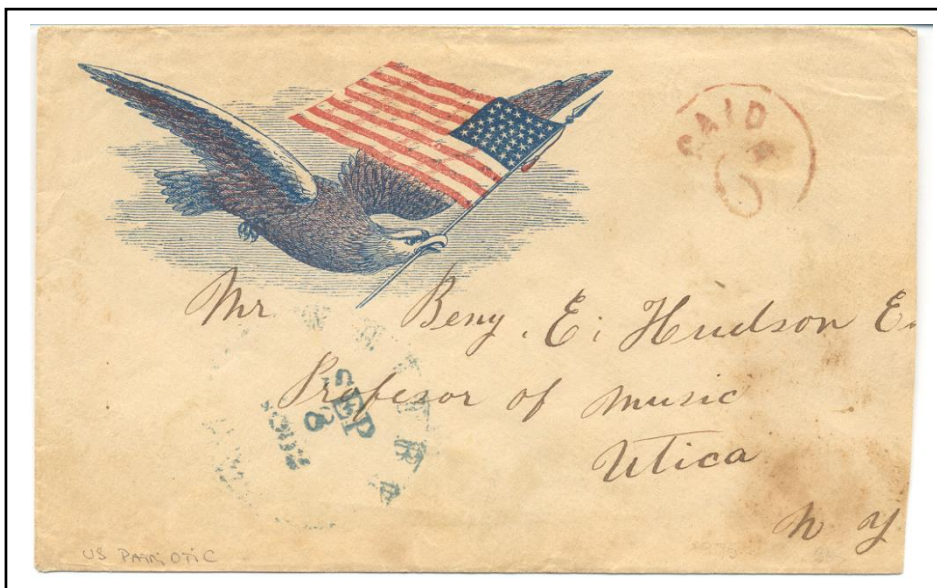 PAID
Mr. Benj. E. Hudson E
Profesor of music
SEP
8
Utica
N Y
US PATRIOTIC